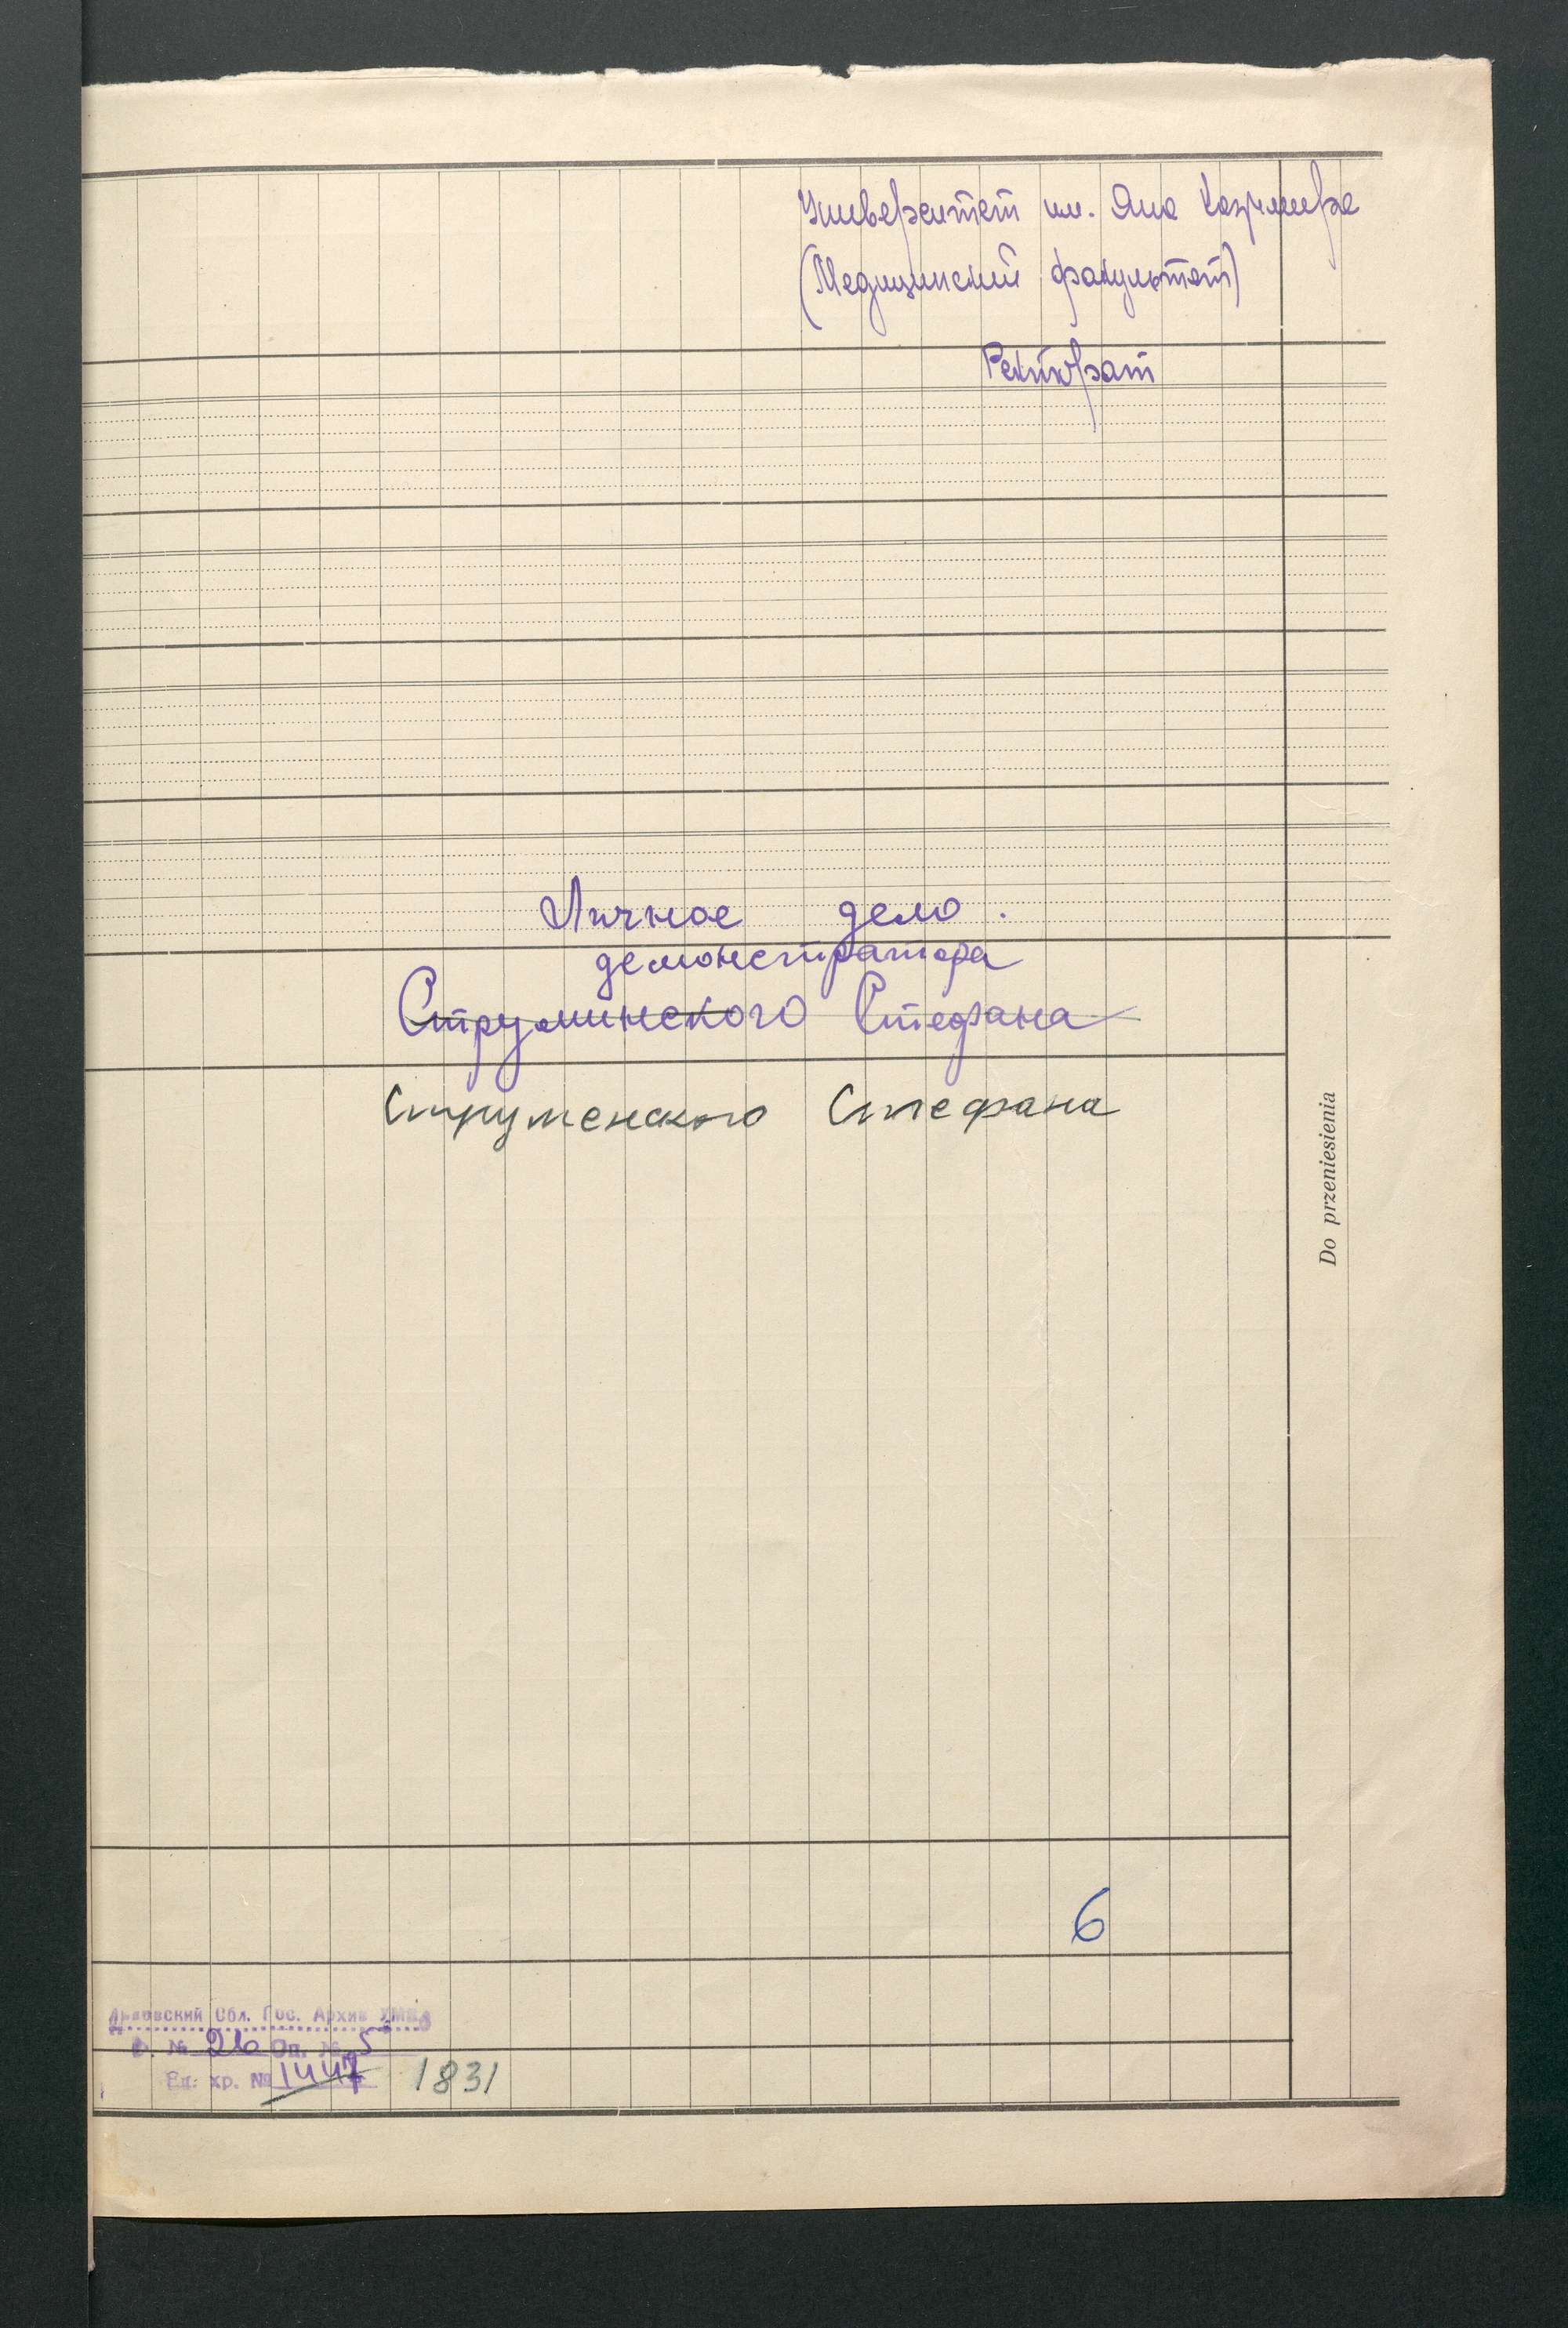 Университет им. Яна Казимира
(Медицинский факультет)
Ректорат
Личное дело.
демонстратора
Струминского Стефана
Струменского Стефана
Do przeniesienia
6
Львовский Обл. Гос. Архив УМВД
Ф. № 26 Оп. № 5
Ед. хр. № 1447 1831